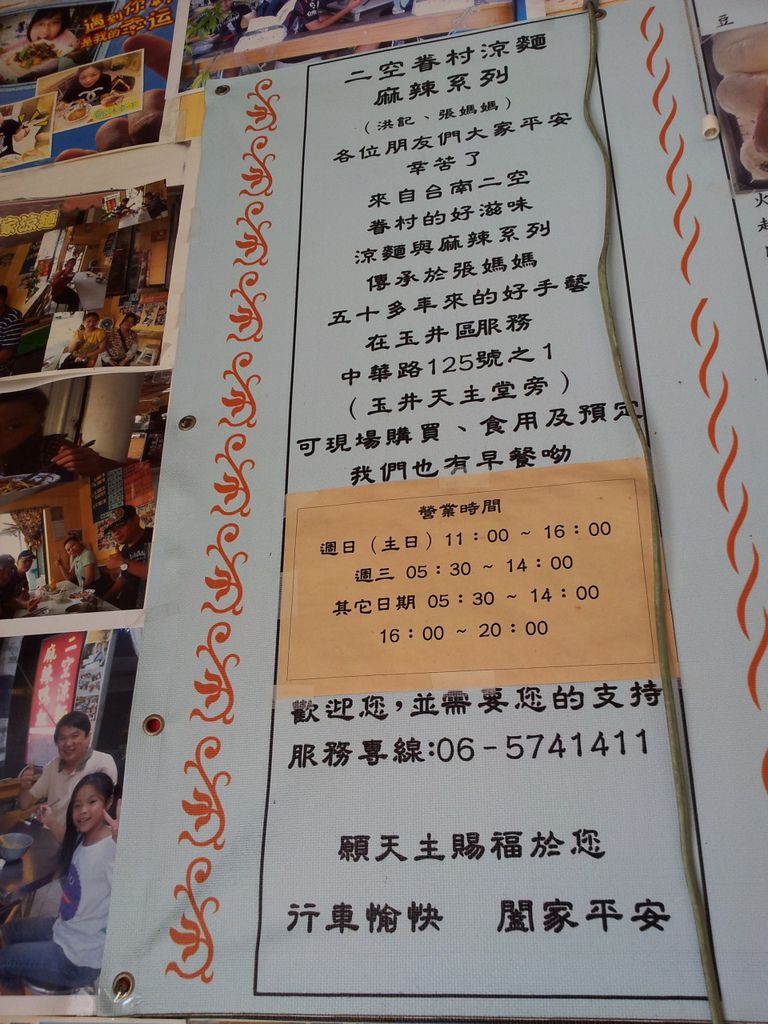 遇到你
是我的幸运
家涼麵
二空涼
麻辣
二空眷村涼麵
麻辣系列
（洪記、張媽媽）
各位朋友們大家平安
辛苦了
來自台南二空
眷村的好滋味
涼麵與麻辣系列
傳承於張媽媽
五十多年來的好手藝
在玉井區服務
中華路125號之1
（玉井天主堂旁）
可現場購買、食用及預定
我們也有早餐呦
營業時間
週日（主日）11：00 ~ 16：00
週三 05：30 ~ 14：00
其它日期 05：30 ~ 14：00
16：00 ~ 20：00
歡迎您，並需要您的支持
服務專線:06-5741411
願天主賜福於您
行車愉快 闔家平安
豆
火